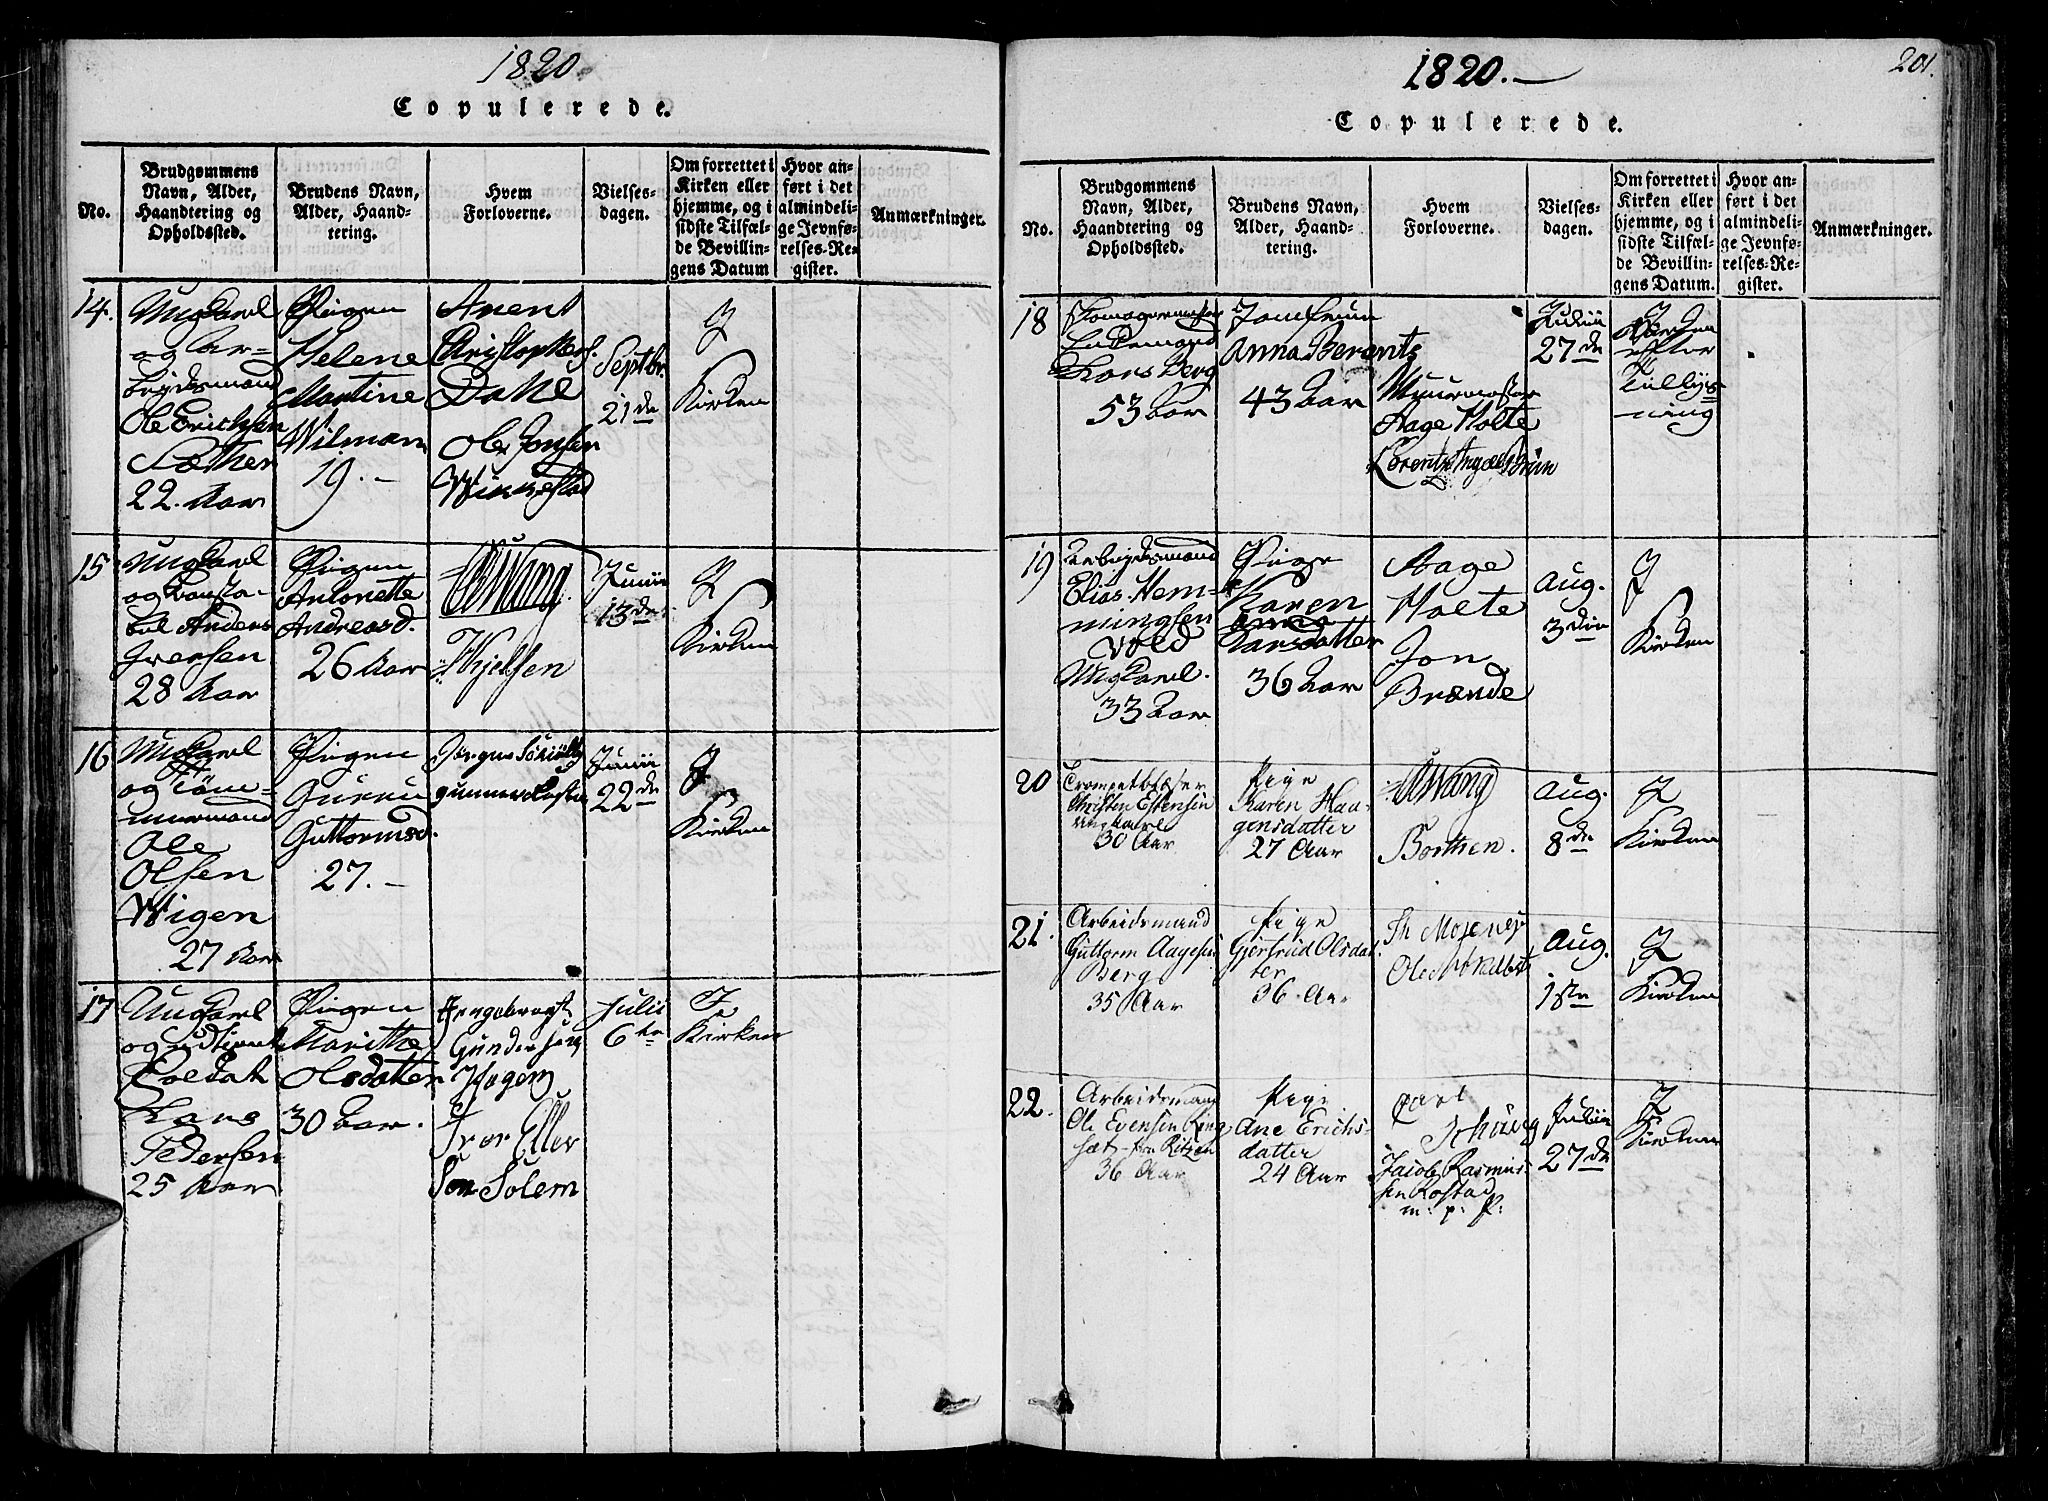 1820.
Copulerede.
No.
Brudgommens
Navn, Alder,
Haandtering og
Opholdssted.
Brudens Navn,
Alder, Haand-
tering.
Hvem
Forloverne.
Vielses-
dagen.
Om forrettet i
Kirken eller
hjemme, og i
sidste Tilfæl-
de Bevillin-
gens Datum
Hvor an-
ført i det
almindeli-
ge Jevnfø-
relses-Re-
gister.
Anmærkninger.
14.
Ungkarl
og Ar-
beidsmand
Ole Erichsen
Sæther
22. Aar
Pigen
Helene
Martine
Wilmann
19. -
Arent
Christophers.
Dahl
Ole Jonsen
Wikkestad
Septbr.
21 de
I
Kirken
15
Ungkarl
og Consta-
bel Anders
Iversen
28 Aar
Pigen
Antonette
Andreasd.
26 Aar
Wang
Hjelsen
Junii
13 de
I
Kirken
16
Ungkarl
og Töm-
mermand
Ole
Olsen
Wigen
27 Aar
Pigen
Gurru
Guttormsd.
27. -
Jørgen
Junii
22 de
I
Kirken
17
Ungkarl
og
Soldat
Lars
Pedersen
25 Aar
Pigen
Marithe
Olsdatter
30 Aar.
Ingebregt
Gundersen
Hagen
Iver Eller
Sen Solem
Julii
6 te
I
Kirken
1820. -
201.
Copulerede.
No.
Brudgommens
Navn, Alder,
Haandtering og
Opholdssted.
Brudens Navn,
Alder, Haand-
tering.
Hvem
Forloverne.
Vielses-
dagen.
Om forrettet i
Kirken eller
hjemme, og i
sidste Tilfæl-
de Bevillin-
gens Datum.
Hvor an-
ført i det
almindeli-
ge Jevnfø-
relses-Re-
gister.
Anmærkninger.
18
Enkemand
Lars Berg
53 Aar
Jomfrue
Anna Berentz
43 Aar
Muurmester
Aage Holte
Lorentz
Julii
27 de
efter
19
Arbeidsmand
Elias Hem-
mingsen
Vold
Ungkarl.
33 Aar
Pige
Karen
Larsdatter
36 Aar
Aage
Holte
Jon
Brænde
Aug.
3 die
I
Kirken
20
Trompetblæser
Christen Estensen
Ungkarl
30 Aar
Pige
Karen Haa-
gensdatter
27 Aar
Wang
Borthen.
Aug.
8 de
I
Kirken
21.
Arbeidsmand
Guttorm Aagesen
Berg
35 Aar
Pige
Gjertrud Olsdat-
ter
36. Aar
Th
Ole
Aug.
1ste
I
Kirken
22.
Arbeidsmand
Ole Evensen Ring-
sæt - fra
36 Aar
Pige
Ane Erichs-
datter
24 Aar
Carl
Schøiug
Jacob Rasmus-
sen Rostad
m: p: p:
Julii
27 de
I
Kirken